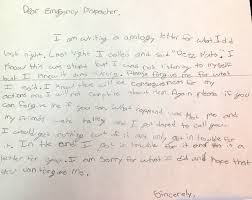 Dear Emergency Dispatcher,
I am writing a apology letter for what I did
last night. Last night I called and said "Deez Nuts". I
know this was stupid but I was not listening to myself
but I knew it was wrong. Please forgive me for what
I said. I know there will be consequences for my
actions and I will not complain about them. Again please if you
can forgive me if you can. What happened was that me and
my friends were and I got dared to call you.
I would get nothing out of it and only get in trouble for
it. In the end I got in trouble for it and this is a
letter for you. I am sorry for what I did and hope that
you can forgive me.
Sincerely,